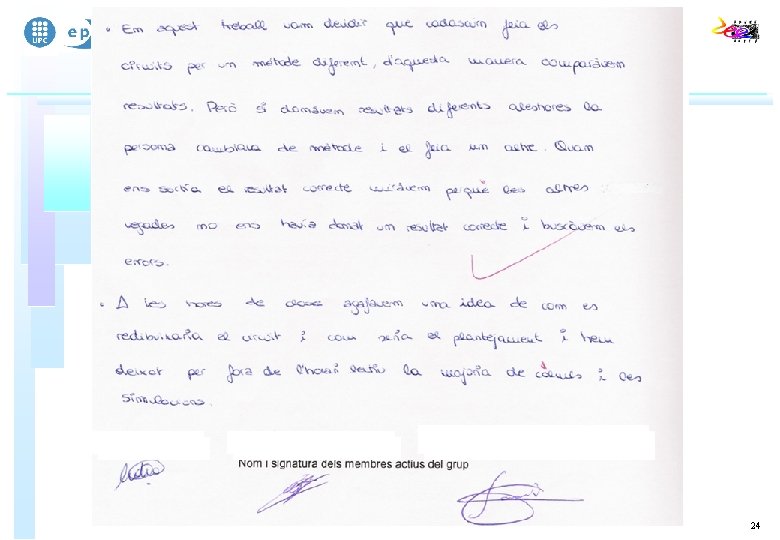 UPC
ep
• En aquest treball vam decidir que cadascun feia els
circuits per un mètode diferent, d'aquesta manera comparàvem
resultats. Però si donàvem resultats diferents aleshores la
persona canviava de mètode i el feia un altre. Quan
ens sortia el resultat correcte miràvem perquè les altres
vegades no ens havia donat un resultat correcte i buscàvem els
errors.
• A les hores de classe agafavem una idea de com es
redibuixaria el circuit i com seria el plantejament i hem
deixat per fora de l'horari lectiu la majoria de càlculs i les
simulacions.
Nom i signatura dels membres actius del grup
24